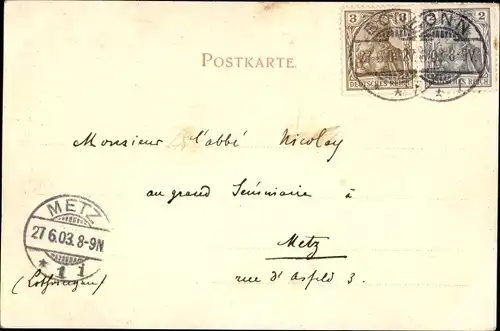 3 3 2
DEUTSCHES REICH
BONN BONN
POSTKARTE
Monsieur l'abbé Nicolay
au grand Séminaire à
Metz
rue d'Asfeld 3.
(Lothringen)
METZ
27.6.03. 8-9N.
* 1 1